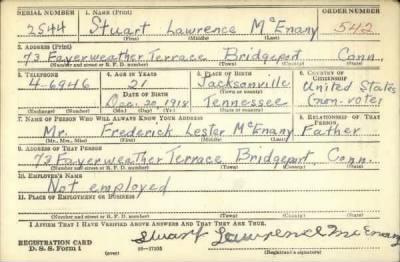 SERIAL NUMBER 1. NAME (Print) ORDER NUMBER
2544 Stuart Lawrence McEnany 542
(First) (Middle) (Last)
2. ADDRESS (Print)
73 Fayerweather Terrace Bridgeport Conn.
(Number and street or R. F. D. number) (Town) (County) (State)
3. TELEPHONE 4. AGE IN YEARS 5. PLACE OF BIRTH 6. COUNTRY OF CITIZENSHIP
4-6946 21 Jacksonville United States
DATE OF BIRTH (Town or county)
Dec. 20, 1918 Tennessee (non-voter)
(Exchange) (Number) (Mo.) (Day) (Yr.) (State or country)
7. NAME OF PERSON WHO WILL ALWAYS KNOW YOUR ADDRESS 8. RELATIONSHIP OF THAT PERSON
Mr. Frederick Lester McEnany Father
(Mr., Mrs., Miss) (First) (Middle) (Last)
9. ADDRESS OF THAT PERSON
73 Fayerweather Terrace Bridgeport, Conn.
(Number and street or R. F. D. number) (Town) (County) (State)
10. EMPLOYER'S NAME
Not employed
11. PLACE OF EMPLOYMENT OR BUSINESS
(Number and street or R. F. D. number) (Town) (County) (State)
I AFFIRM THAT I HAVE VERIFIED ABOVE ANSWERS AND THAT THEY ARE TRUE.
REGISTRATION CARD Stuart Lawrence McEnany
D. S. S. Form 1 (over) (Registrant's signature)